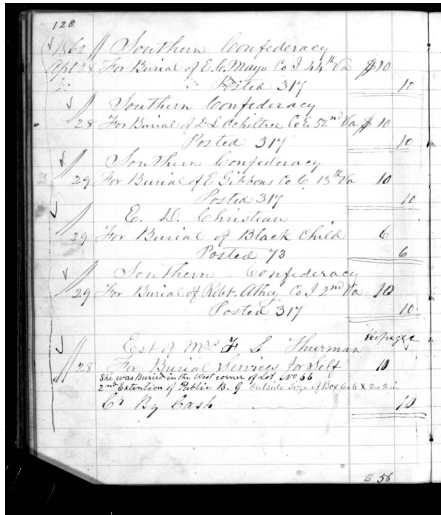 128
1862 // Southern Confederacy
Apl 28 For Burial of E. C. Mays Co I 44th Va $10
Posted 317 10
Southern Confederacy
28 For Burial of D. L. Ochiltree Co E 52nd Va $10
Posted 317 10
Southern Confederacy
29 For Burial of E Gibbons Co C 13th Va 10
Posted 317 10
E. D. Christian
29 For Burial of Black Child 6
Posted 73 6
Southern Confederacy
29 For Burial of Robt. Athey Co I 2nd Va 10
Posted 317 10
Est of Mrs F L Thurman Refugee
28 For Burial Services for Self 10
She was Buried in the West corner of Lot No 66
2nd Extention of Public B. G Outside Size of Box 6.6 x 2.2 in
Cr By Cash 10
$ 56